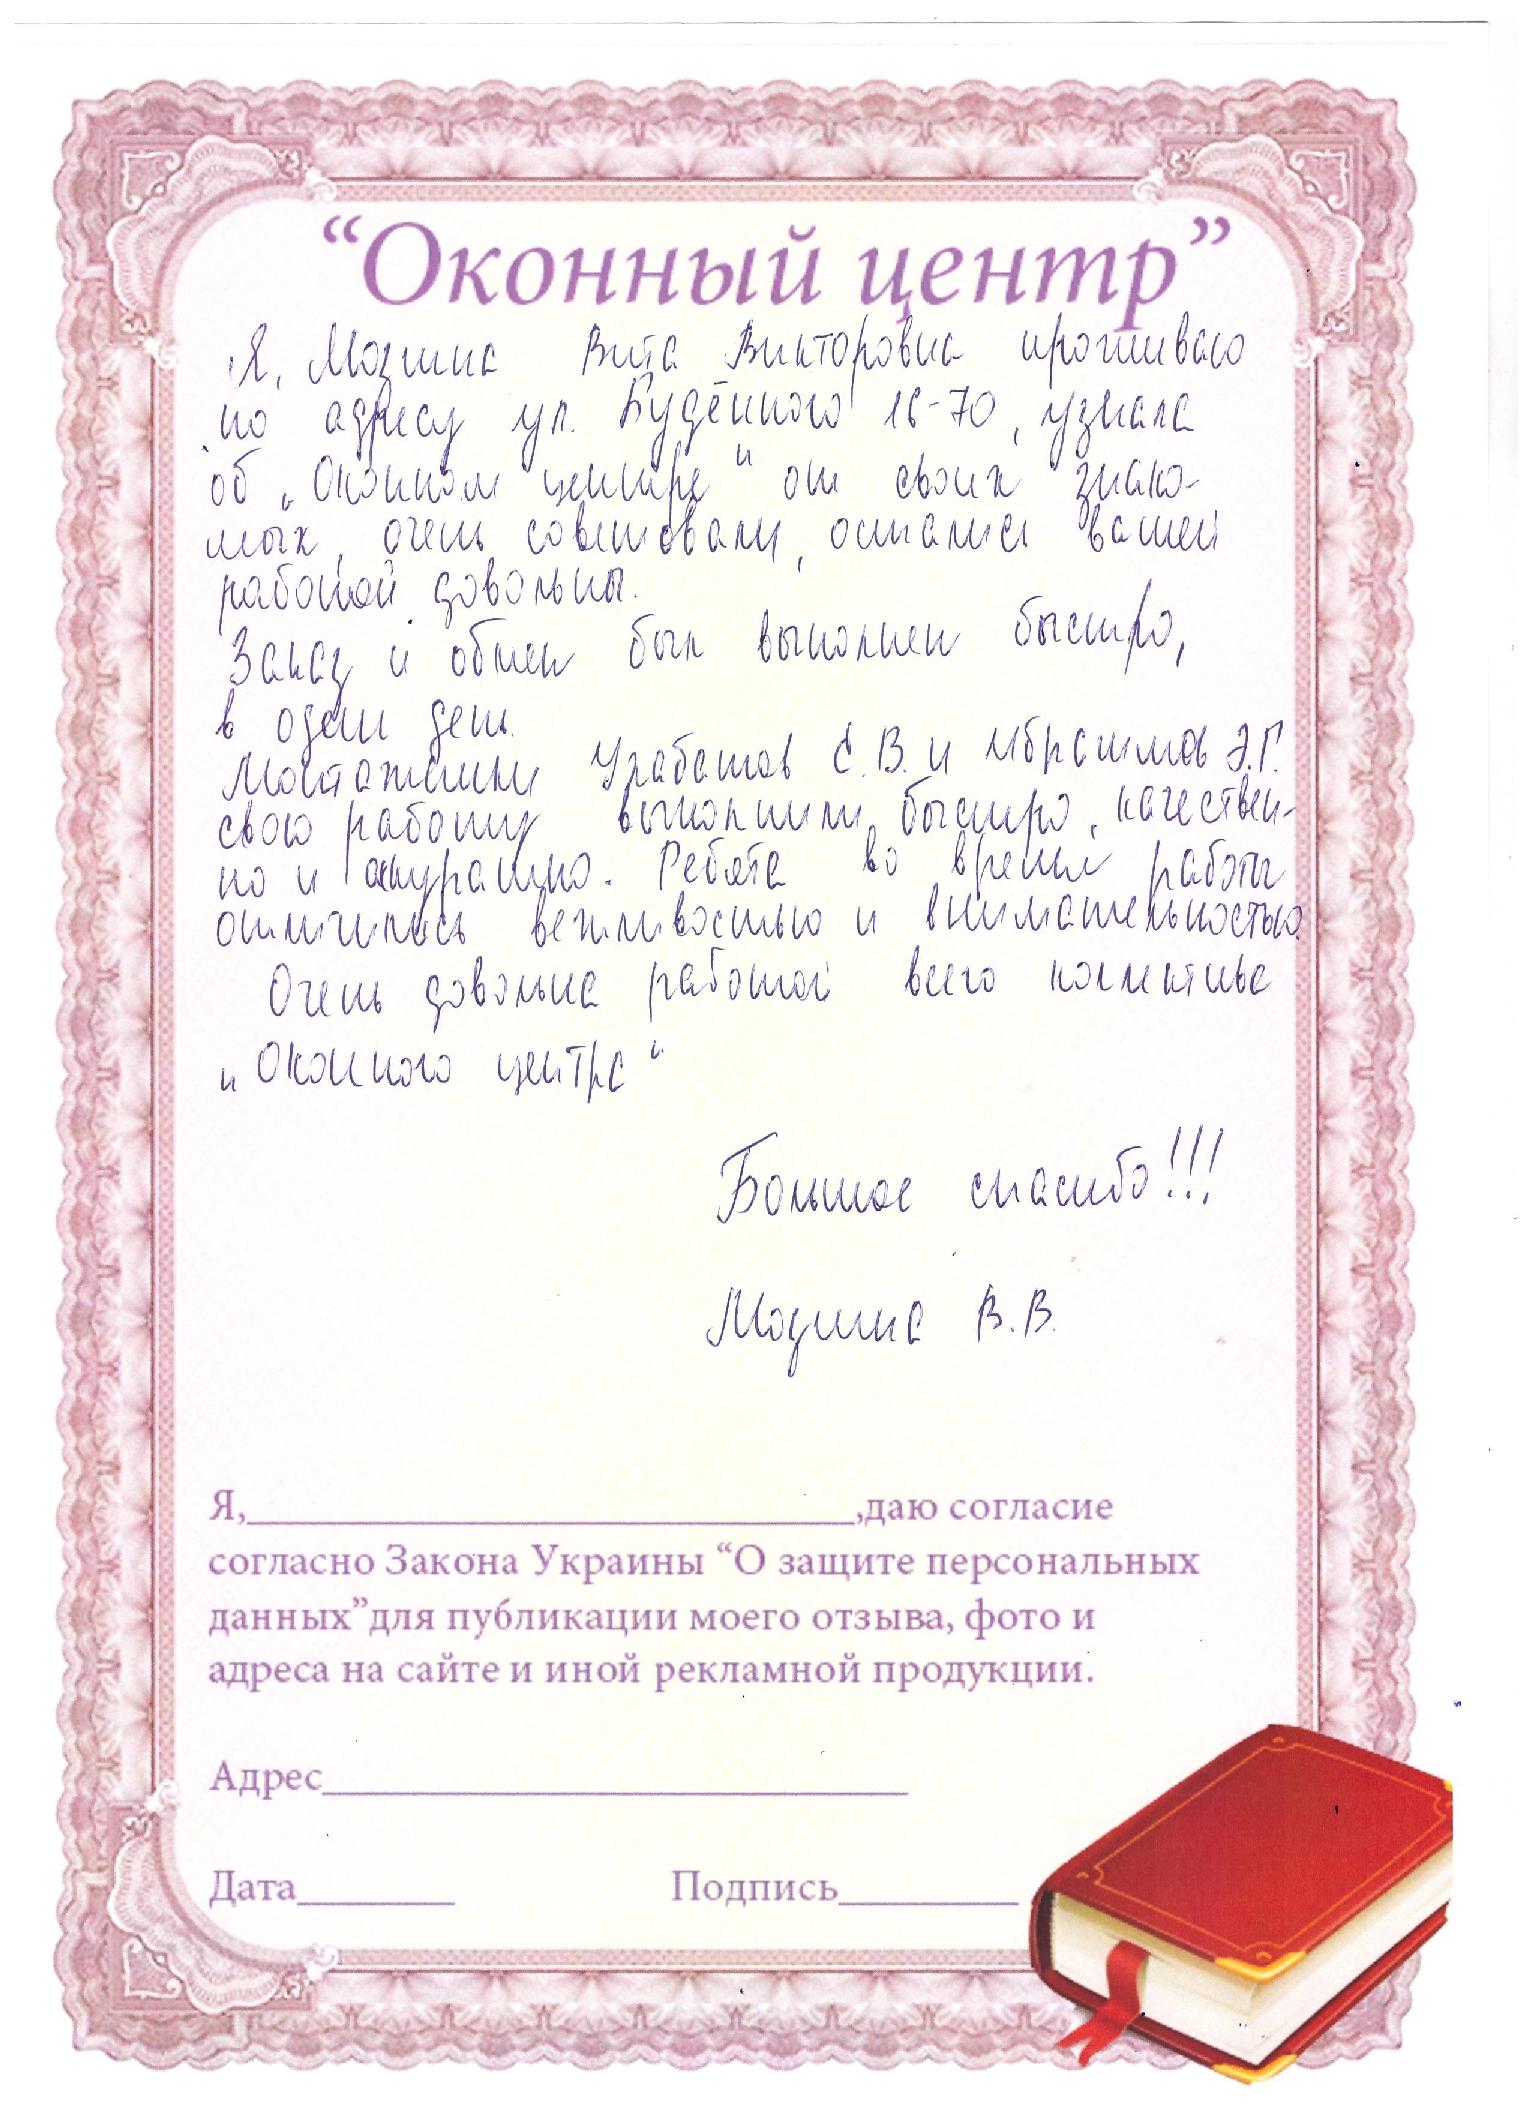 “Оконный центр”
Я, Вита Викторовна проживаю
по адресу ул. Будённого 16-70, узнала
об „Оконном центре“ от своих знако-
мых, очень советовали, остались вашей
работой довольны.
Заказ и обмен был выполнен быстро,
в один день.
Монтажники Е.В. и Ибрагимов Э.Г.
свою работу выполнили быстро, качествен-
но и аккуратно. Ребята во время работы
отличились вежливостью и внимательностью.
Очень довольна работой всего коллектива
„Оконного центра“
Большое спасибо!!!
В.В.
Я,____________________________,даю согласие
согласно Закона Украины “О защите персональных
данных”для публикации моего отзыва, фото и
адреса на сайте и иной рекламной продукции.
Адрес___________________________
Дата_______ Подпись________